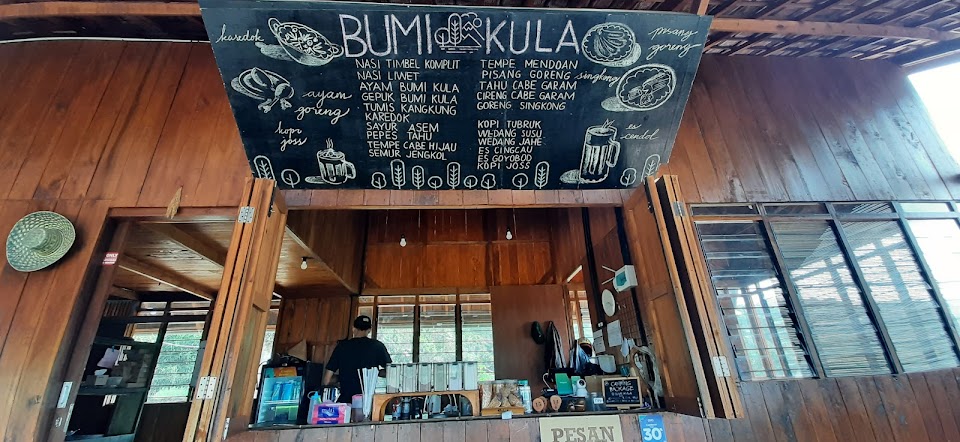 BUMI KULA
karedok
ayam goreng
kopi joss
NASI TIMBEL KOMPLIT
NASI LIWET
AYAM BUMI KULA
GEPUK BUMI KULA
TUMIS KANGKUNG
KAREDOK
SAYUR ASEM
PEPES TAHU
TEMPE CABE HIJAU
SEMUR JENGKOL
TEMPE MENDOAN
PISANG GORENG
TAHU CABE GARAM
CIRENG CABE GARAM
GORENG SINGKONG
KOPI TUBRUK
WEDANG SUSU
WEDANG JAHE
ES CINGCAU
ES GOYOBOD
KOPI JOSS
pisang goreng
singkong
es cendol
PACKAGE
PESAN
30